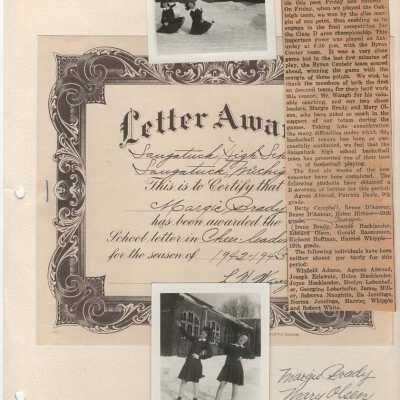 Letter Awa
Saugatuck High Sc
Saugatuck, Michig
This is to Certify that
Margie Brady
has been awarded the
School letter in Cheer leade
for the season of 1942-1943
L. H. Wau
this past Friday
On Friday, when we played the
leigh team, we won by the slim mar-
gin of one point, thus enabling us to
engage in the final competition for
the Class D area championship. This
important game was played on Sat-
urday at 8:30 p.m. with the Byron
Center team. It was a very close
game but in the last few minutes of
play, the Byron Center team soared
ahead, winning the game with the
margin of three points. We wish to
thank the members of both the first
and second team, for their hard work
this season; Mr. Waugh for his valu-
able coaching, and our two cheer
leaders, Margie Brady and Mary Ol-
sen, who have aided so much in the
support of our teams during the
games. Taking into consideration
the many difficulties under which the
basketball season has been so suc-
cessfully conducted, we feel that the
Saugatuck High school basketball
team has presented one of their best
of basketball playing.
The first six weeks of the new
semester have been completed. The
following students have obtained a
B average or better for this period:
Agnes Abroad, Norma Davis, 9th
grade.
Betty Campbell, Renee D'Asseur,
Irene D'Asseur, Helen Hutson—10th
grade.
Irene Brady, Joseph Hacklander,
Edward Olsen, Gerald Rasmussen,
Richard Hoffman, Harriet Whipple—
12th grade.
The following individuals have been
neither absent nor tardy for this
period:
Winfield Adams, Agness Abroad,
Joseph Erlewein, Helen Hacklander,
Joyce Hacklander, Evelyn Lebenhof-
er, Georgine Lebenhofer, James Mill-
er, Roberta Naughtin, Ila Jennings,
Norma Jennings, Harriet Whipple
and Robert White.
Margie Brady
Mary Olsen